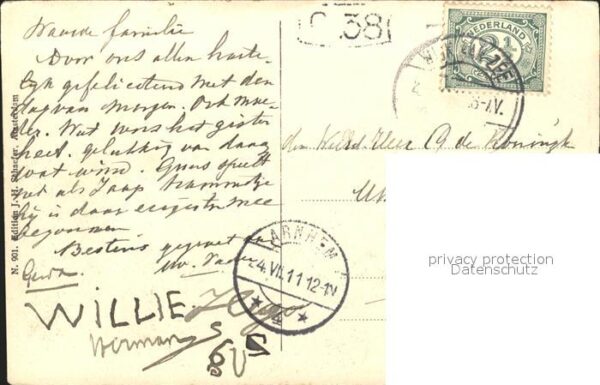 Waarde familie
Door ons allen harte-
lijk gefeliciteerd met den
dag van morgen. Ook moe-
der. Wat was het gister
heet, gelukkig van daag
wat wind. Guus speelt
net als Jaap trammetje
hij is daar eergister mee
begonnen
Bestens gegroet
Gerda
WILLIE
Herman
N. 901. Edition J. H. Schaefer, Amsterdam
C 381
NEDERLAND
2½
AAN ZEE
den WelEd. Heer de Koningh
ARNHEM
24.VII.11 12-1V
4
privacy protection
Datenschutz